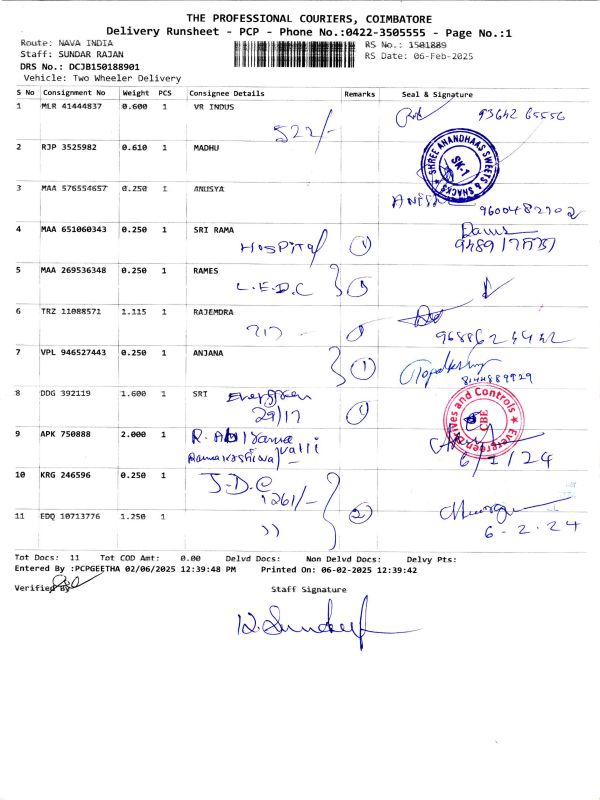 THE PROFESSIONAL COURIERS, COIMBATORE
Delivery Runsheet - PCP - Phone No.:0422-3505555 - Page No.:1
Route: NAVA INDIA
RS No.: 1501889
Staff: SUNDAR RAJAN
RS Date: 06-Feb-2025
DRS No.: DCJB150188901
Vehicle: Two Wheeler Delivery
S No Consignment No Weight PCS Consignee Details Remarks Seal & Signature
1 MLR 41444837 0.600 1 VR INDUS
522/- 93642 65556
2 RJP 3525982 0.610 1 MADHU
SHREE ANANDHAAS SWEETS & SNACKS
SK-1
3 MAA 576554657 0.250 1 ANUSYA
9600482902
4 MAA 651060343 0.250 1 SRI RAMA
HOSPITAL 1
5 MAA 269536348 0.250 1 RAMES
L.E.D.C
6 TRZ 11088571 1.115 1 RAJEMDRA
717
7 VPL 946527443 0.250 1 ANJANA
1
8144889929
8 DDG 392119 1.600 1 SRI Evergreen
29/17 1
Evergreen Drives and Controls
CBE
9 APK 750888 2.000 1
6/2/24
10 KRG 246596 0.250 1 J.D.C
1261/- 2
11 EDQ 10713776 1.250 1 ))
6-2.24
Tot Docs: 11 Tot COD Amt: 0.00 Delvd Docs: Non Delvd Docs: Delvy Pts:
Entered By :PCPGEETHA 02/06/2025 12:39:48 PM Printed On: 06-02-2025 12:39:42
Verified By Staff Signature